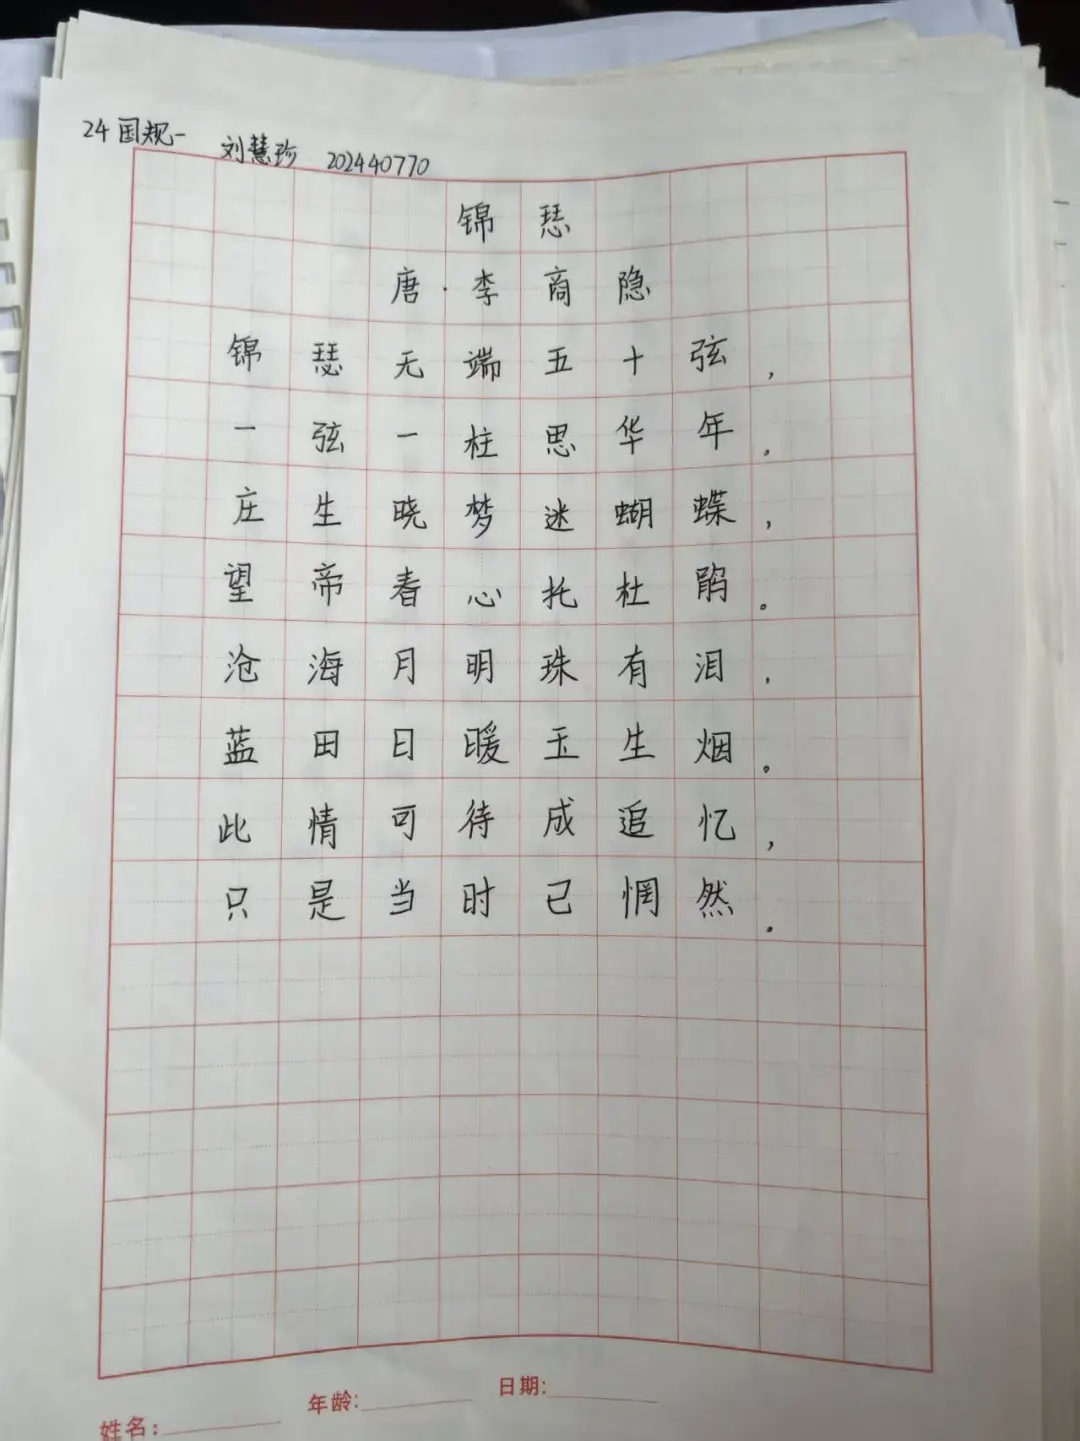 24国规一 刘慧珍 202440770
锦瑟
唐·李商隐
锦瑟无端五十弦，
一弦一柱思华年。
庄生晓梦迷蝴蝶，
望帝春心托杜鹃。
沧海月明珠有泪，
蓝田日暖玉生烟。
此情可待成追忆，
只是当时已惘然。
姓名：
年龄：
日期：